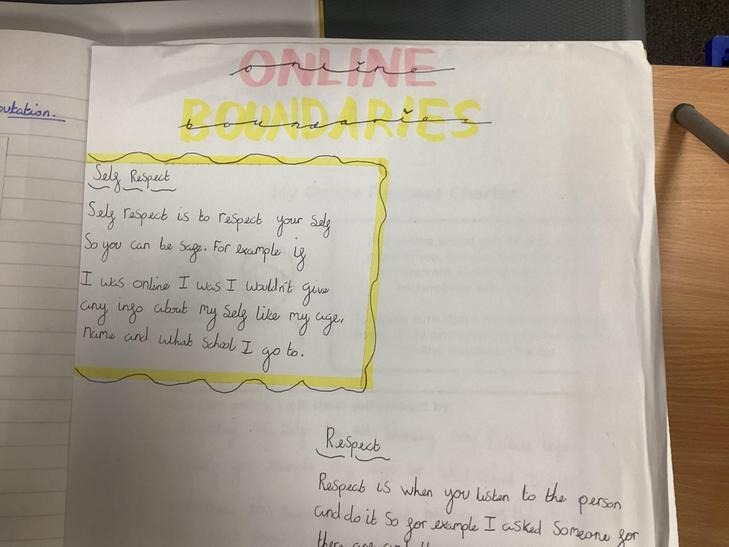 outation.
ONLINE
online
BOUNDARIES
boundaries
Self Respect
Self respect is to respect your self
So you can be safe. For example if
I was online I was I wouldn't give
any info about my self like my age,
name and what school I go to.
Respect
Respect is when you listen to the person
and do it so for example I asked someone for
there age and